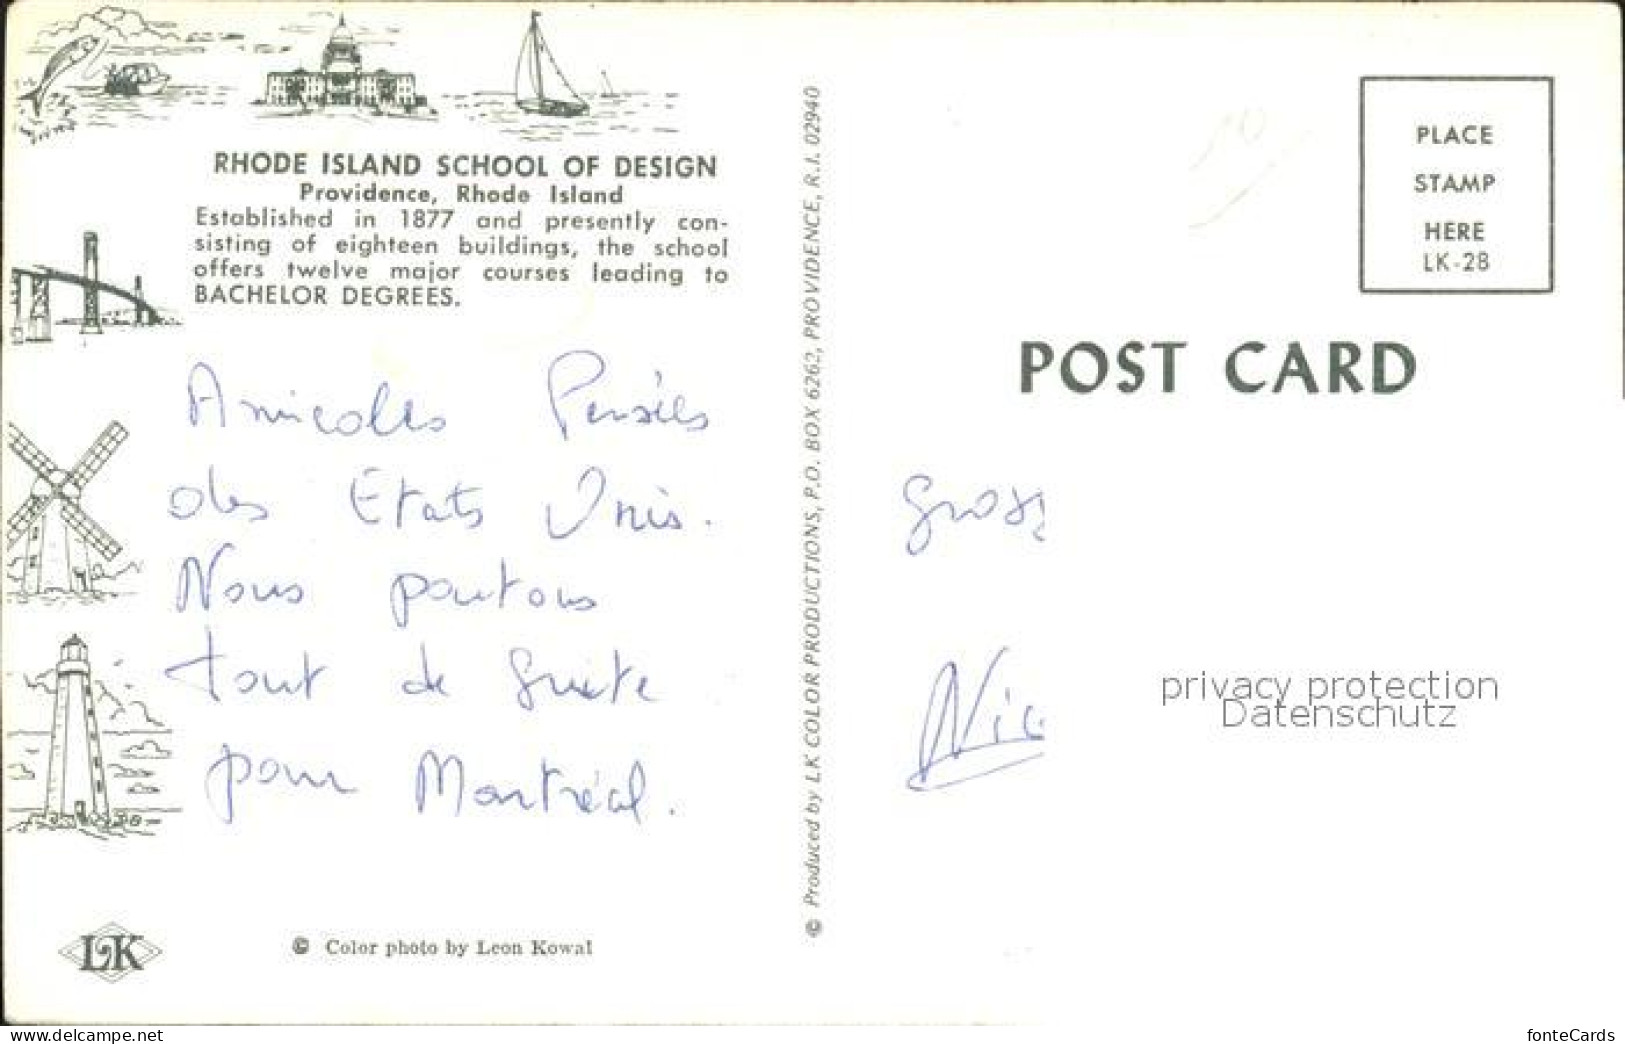 RHODE ISLAND SCHOOL OF DESIGN
Providence, Rhode Island
Established in 1877 and presently con-
sisting of eighteen buildings, the school
offers twelve major courses leading to
BACHELOR DEGREES.
Amicales Pensées
des Etats Unis.
Nous partons
tout de suite
pour Montréal.
LK
© Color photo by Leon Kowal
© Produced by LK COLOR PRODUCTIONS, P.O. BOX 6262, PROVIDENCE, R.I. 02940
PLACE
STAMP
HERE
LK-28
POST CARD
Nic
privacy protection
Datenschutz
www.delcampe.net
fonteCards